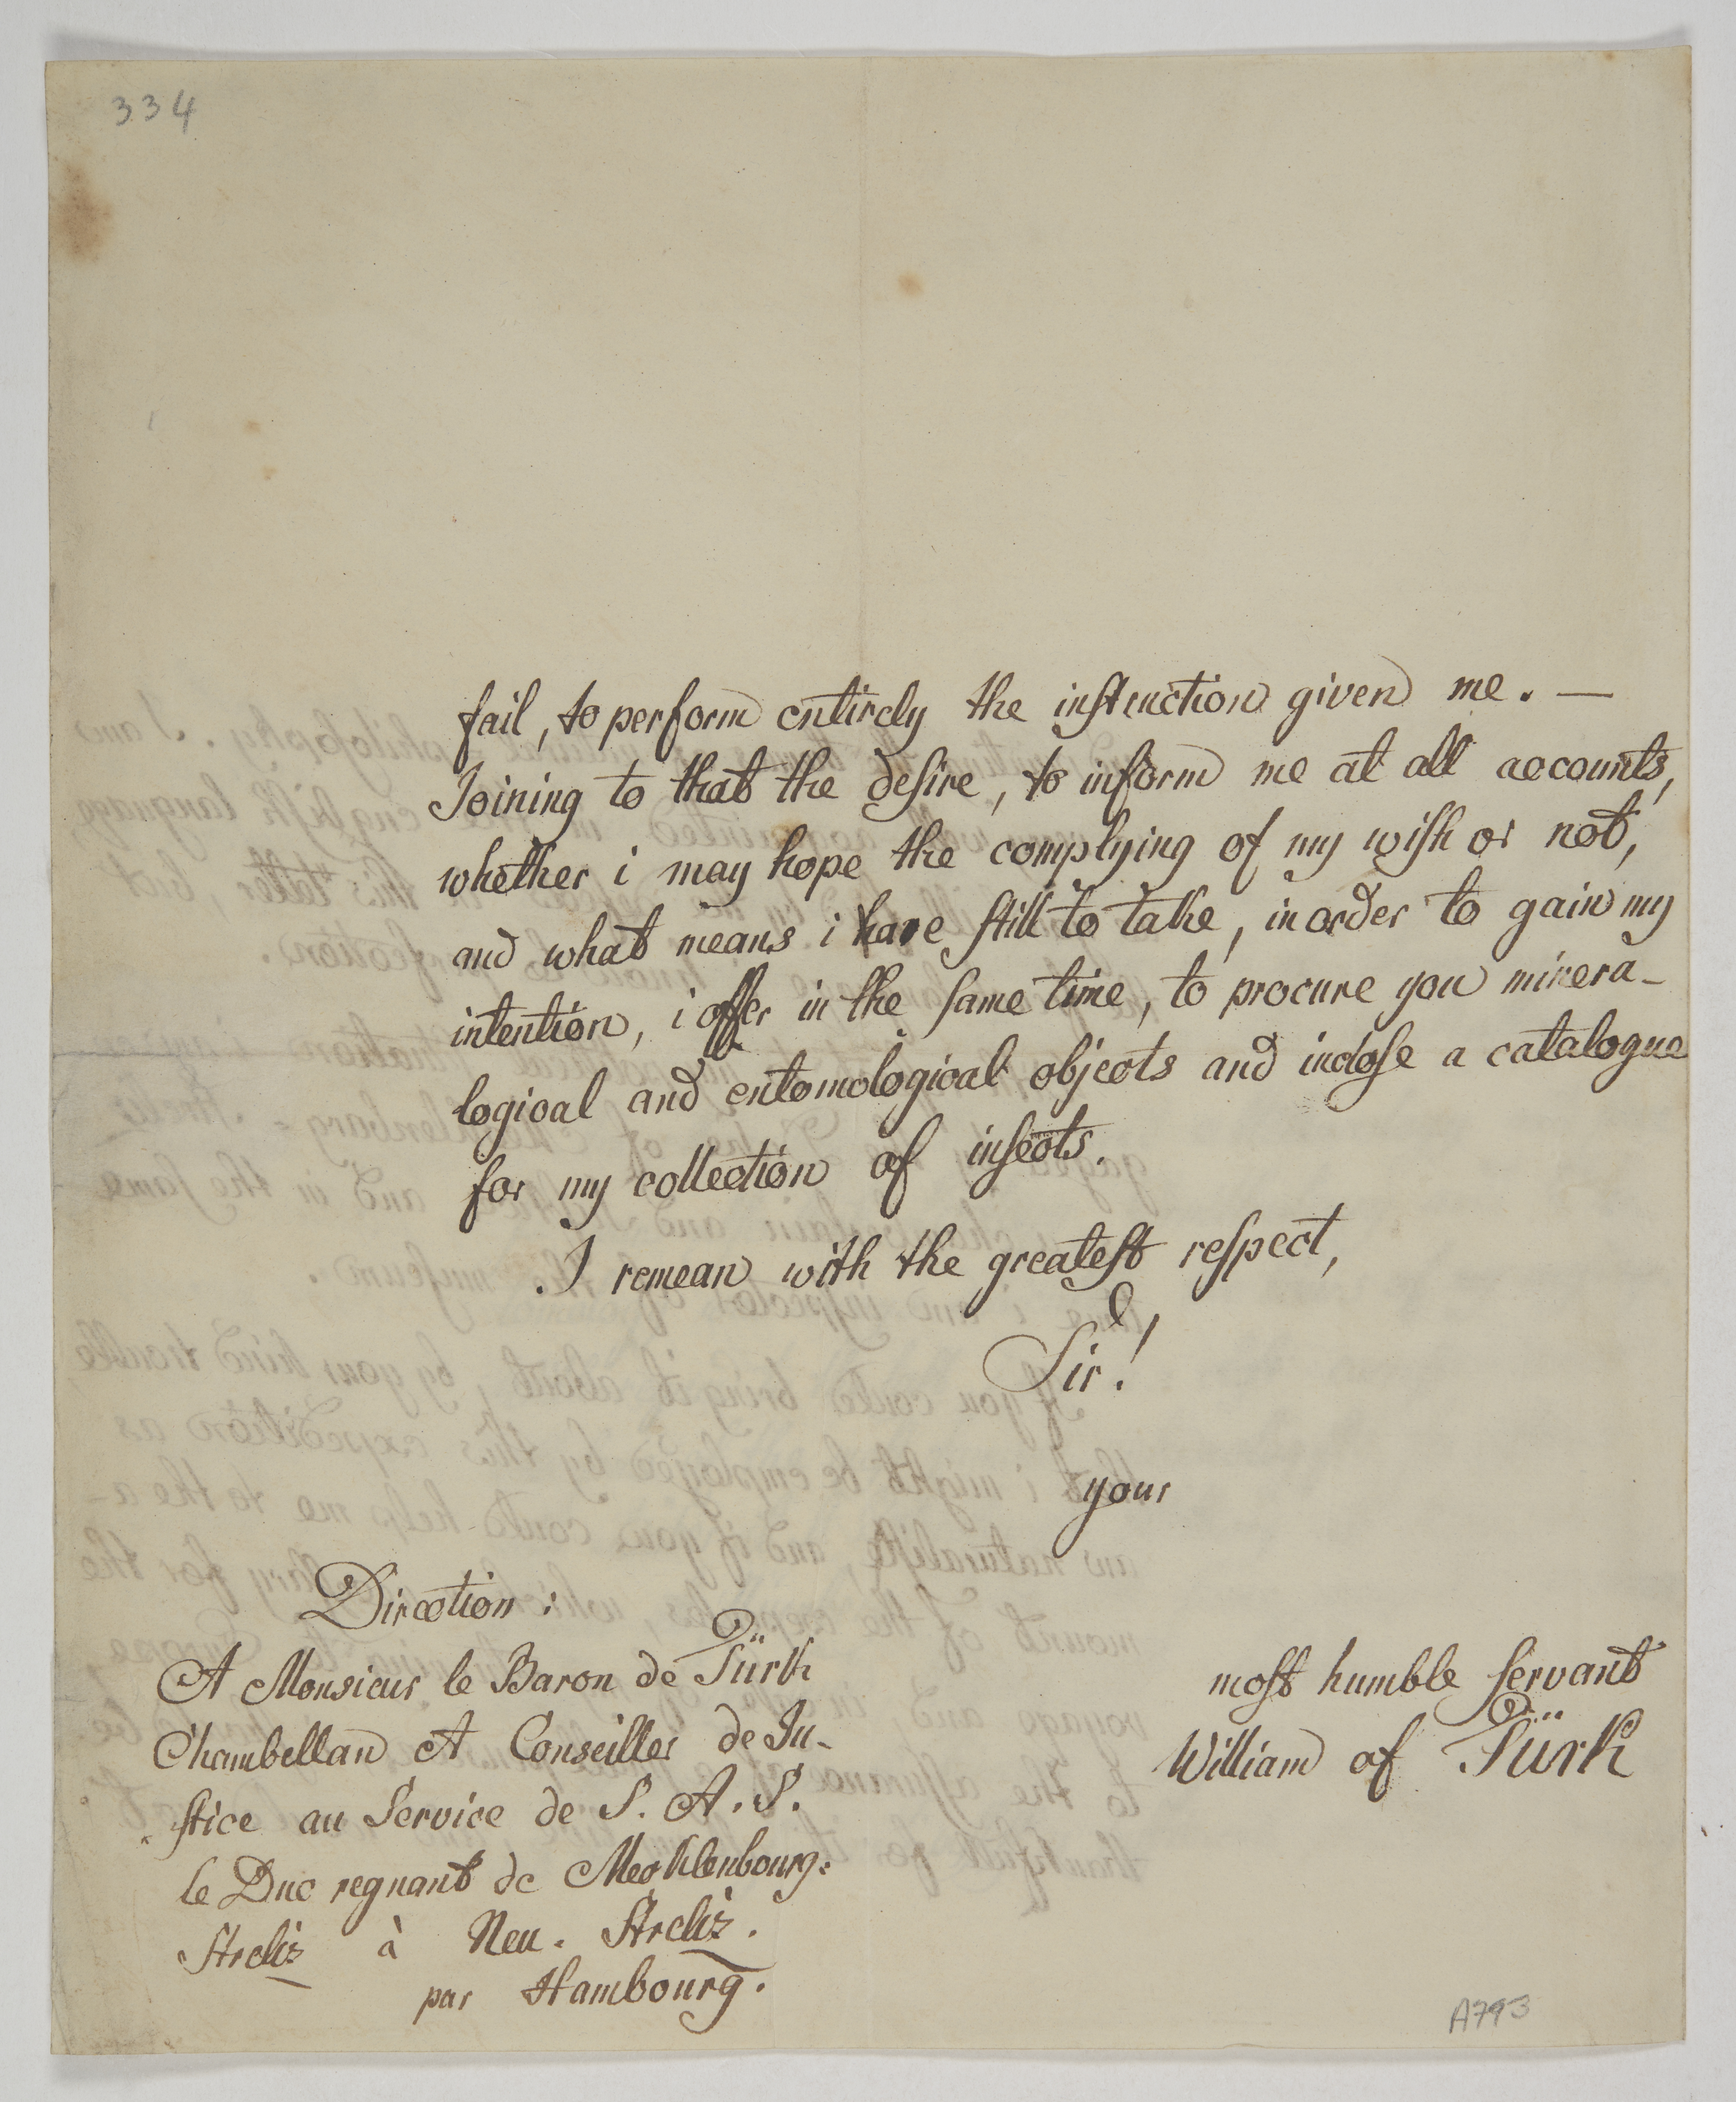 334
fail, to perform entirely the instruction given me. —
Joining to that the desire, to inform me at all accounts,
whether i may hope the complying of my wish or not,
and what means i have still to take, in order to gain my
intention, i offer in the same time, to procure you minera-
logical and entomological objects and inclose a catalogue
for my collection of insects.
I remean with the greatest respect,
Sir!
your
most humble servant
William of Türk
Direction:
A Monsieur le Baron de Türk
Chambellan et Conseiller de Ju-
stice au Service de S. A. S.
le Duc regnant de Mecklenbourg-
Streliz à Neu-Streliz.
par Hambourg.
A793